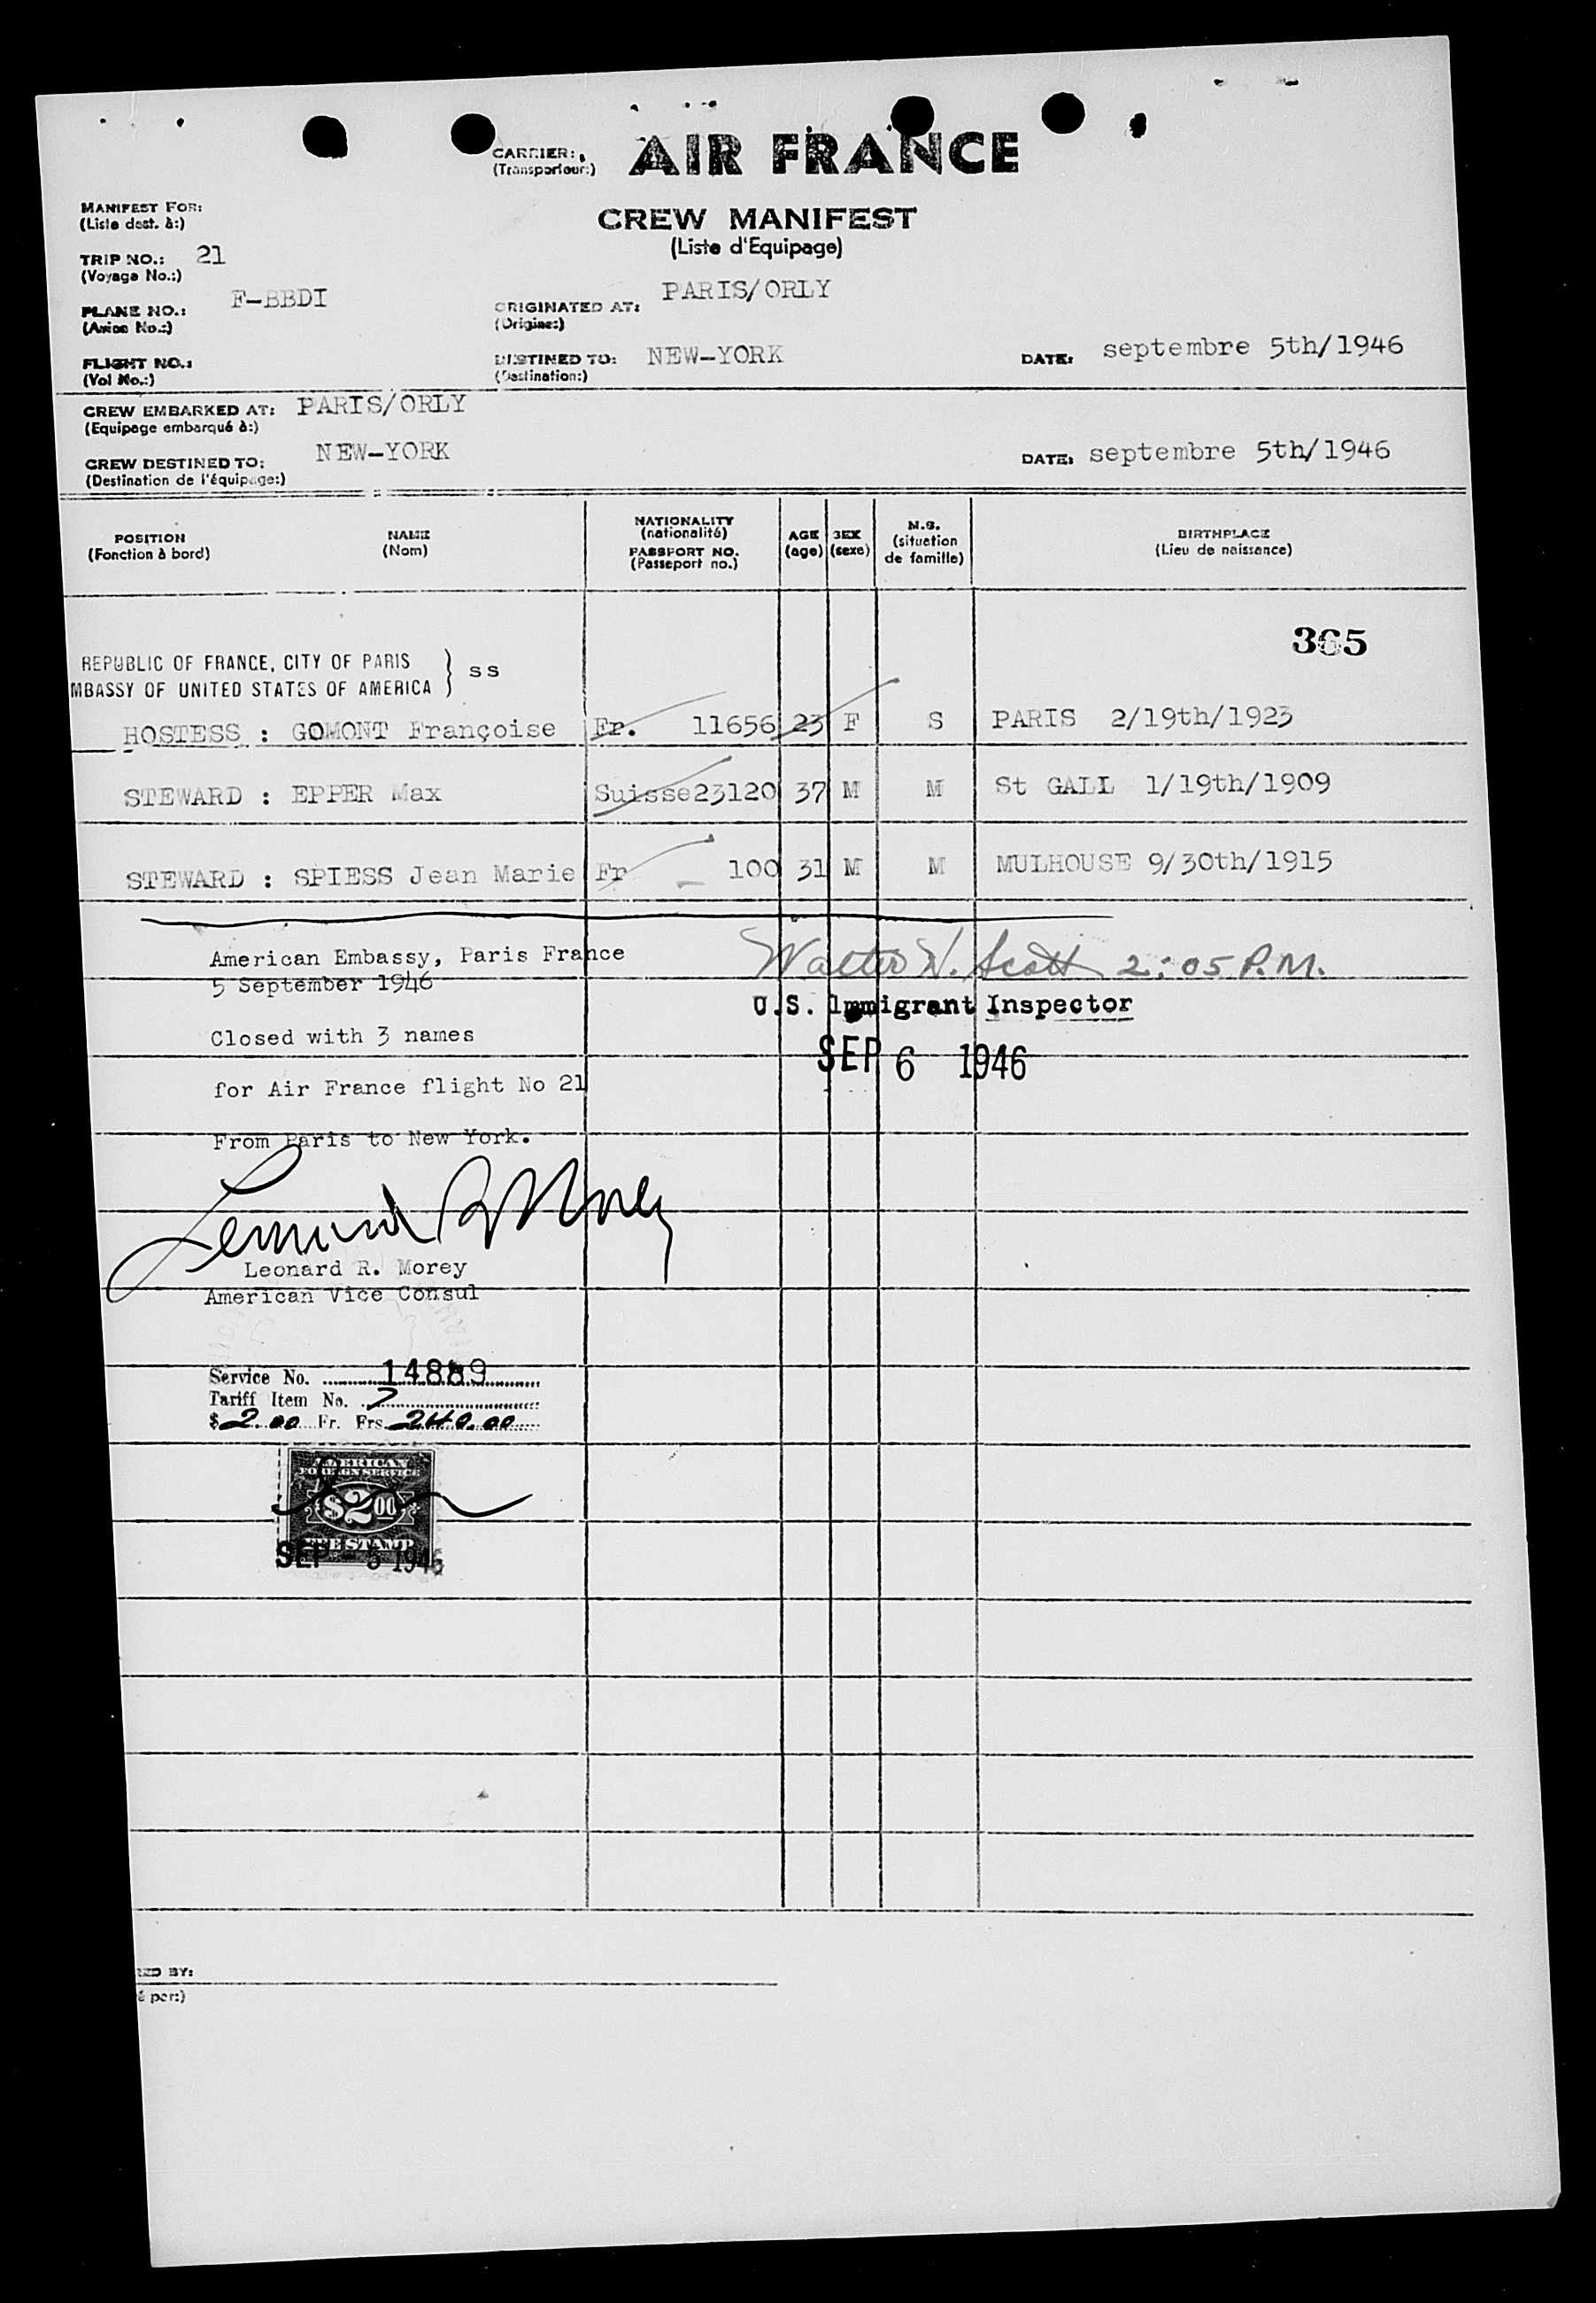 CARRIER: AIR FRANCE
(Transporteur:)
CREW MANIFEST
(Liste d'Equipage)
MANIFEST FOR:
(Liste dest. à:)
TRIP NO.: 21
(Voyage No.:)
PLANE NO.: F-BBDI
(Avion No.:)
ORIGINATED AT: PARIS/ORLY
(Origine:)
FLIGHT NO.:
(Vol No.:)
DESTINED TO: NEW-YORK
(Destination:)
DATE: septembre 5th/1946
CREW EMBARKED AT: PARIS/ORLY
(Equipage embarqué à:)
CREW DESTINED TO: NEW-YORK
(Destination de l'équipage:)
DATE: septembre 5th/1946
POSITION
(Fonction à bord)
NAME
(Nom)
NATIONALITY
(nationalité)
PASSPORT NO.
(Passeport no.)
AGE
(age)
SEX
(sexe)
M.S.
(situation
de famille)
BIRTHPLACE
(Lieu de naissance)
365
REPUBLIC OF FRANCE, CITY OF PARIS
MBASSY OF UNITED STATES OF AMERICA } SS
HOSTESS : GOMONT Françoise Fr. 11656 23 F S PARIS 2/19th/1923
STEWARD : EPPER Max Suisse 23120 37 M M St GALL 1/19th/1909
STEWARD : SPIESS Jean Marie Fr - 100 31 M M MULHOUSE 9/30th/1915
American Embassy, Paris France
5 September 1946
Closed with 3 names
for Air France flight No 21
From Paris to New York.
Walter N. Scott 2:05 P.M.
U.S. Immigrant Inspector
SEP 6 1946
Leonard R. Morey
Leonard R. Morey
American Vice Consul
Service No. 14889
Tariff Item No. 7
$ 2.00 Fr. Frs. 240.00
AMERICAN
FOREIGN SERVICE
$2.00
FEE STAMP
SEP - 5 1946
RED BY:
é par:)